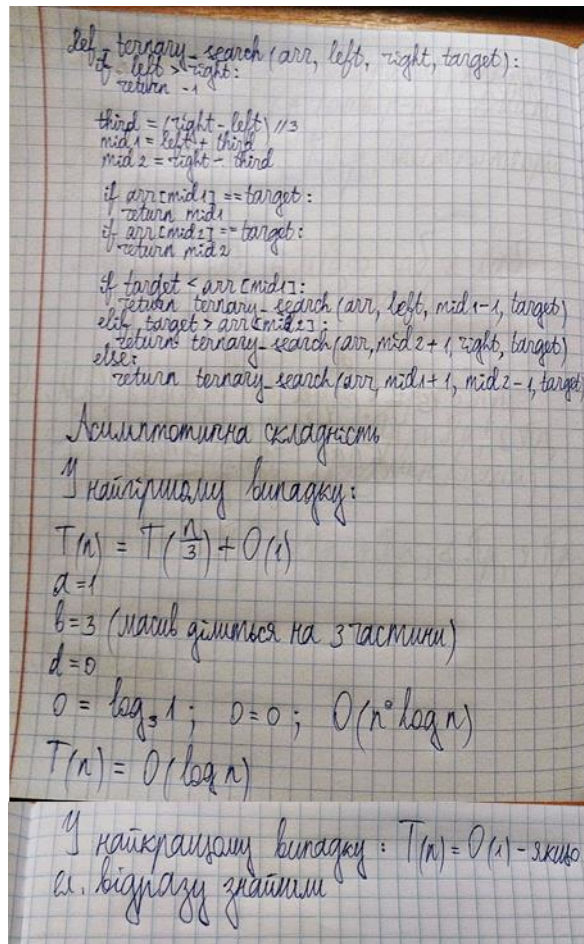 def ternary_search(arr, left, right, target):
if left > right:
return -1
third = (right - left) //3
mid1 = left + third
mid2 = right - third
if arr[mid1] == target:
return mid1
if arr[mid2] == target:
return mid2
if target < arr[mid1]:
return ternary_search(arr, left, mid1-1, target)
elif target > arr[mid2]:
return ternary_search(arr, mid2+1, right, target)
else:
return ternary_search(arr, mid1+1, mid2-1, target
Асимптотична складність
У найгіршому випадку:
T(n) = T(n/3) + O(1)
a=1
b=3 (масив ділиться на 3 частини)
d=0
0 = log₃1; 0=0; O(n⁰ log n)
T(n) = O(log n)
У найкращому випадку: T(n) = O(1) - якщо
ел. відразу знайшли